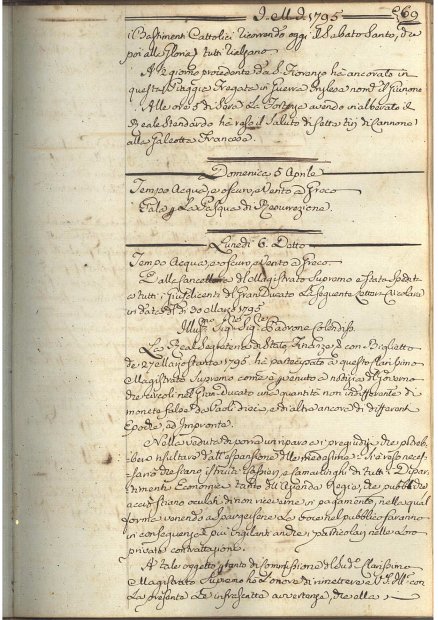 I. M. D. 1795
269
i Bastimenti Cattolici ricorrendo oggi il Sabato Santo, che
poi alla Gloria tutti
A di giorno procedente da S. Fiorenzo ha ancorato in
questa Piaggia Fregata in Guerra Inglesa nom.
Alle ore 5 di Sera La Fortezza avendo inalberato il
Reale Stendardo ha reso il Saluto di Setta tiri di Cannone
alla Galeotta Francese.
Domenica 5 Aprile
Tempo Acqua, e oscuro, e Vento a Greco
Gala p. La Pasqua di Resurrezione.
Lunedi 6. Detto
Tempo Acqua, e oscuro, e Vento a Greco
Dalla Cancelleria del Magistrato Supremo è stata Spedita
a tutti i Giusdicenti del Gran Ducato La Seguente Lettera Circolare
in data de' 30 Marzo 1795
Illmo. Sig. Sig. Padrone Colendiss.
La Real Segreteria di Stato, e Finanze con Biglietto
de 27 Marzo stante 1795 ha partecipato a questo Clarissimo
Magistrato Supremo come è pervenuto a notizia del Governo
che circoli nel Gran Ducato una quantità non indifferente di
moneta falsa da Paoli dieci, e di altra ancora di differenti
Epoche, ed Impronta.
Nella veduta di porre un riparo ai pregiudizi, che potreb-
bero risultare dall'espansione delle medesime si è reso neces-
sario che siano istruiti i Cassieri, e Camarlinghi di tutti i Dipar-
timenti Economici tanto dell'Azienda Regia, che pubblici
acciò stiano oculati di non riceverne in pagamento, nella qual
forma venendo a spargersene La voce nel pubblico saranno
in conseguenza più vigilanti anche i particolari nelle Loro
private contrattazioni.
A tale oggetto stante di Commissione del sud. Clarissimo
Magistrato Supremo ho L'onore di rimettere a V. S. Ill. con
La presente Le infrascritte avvertenze, che ella